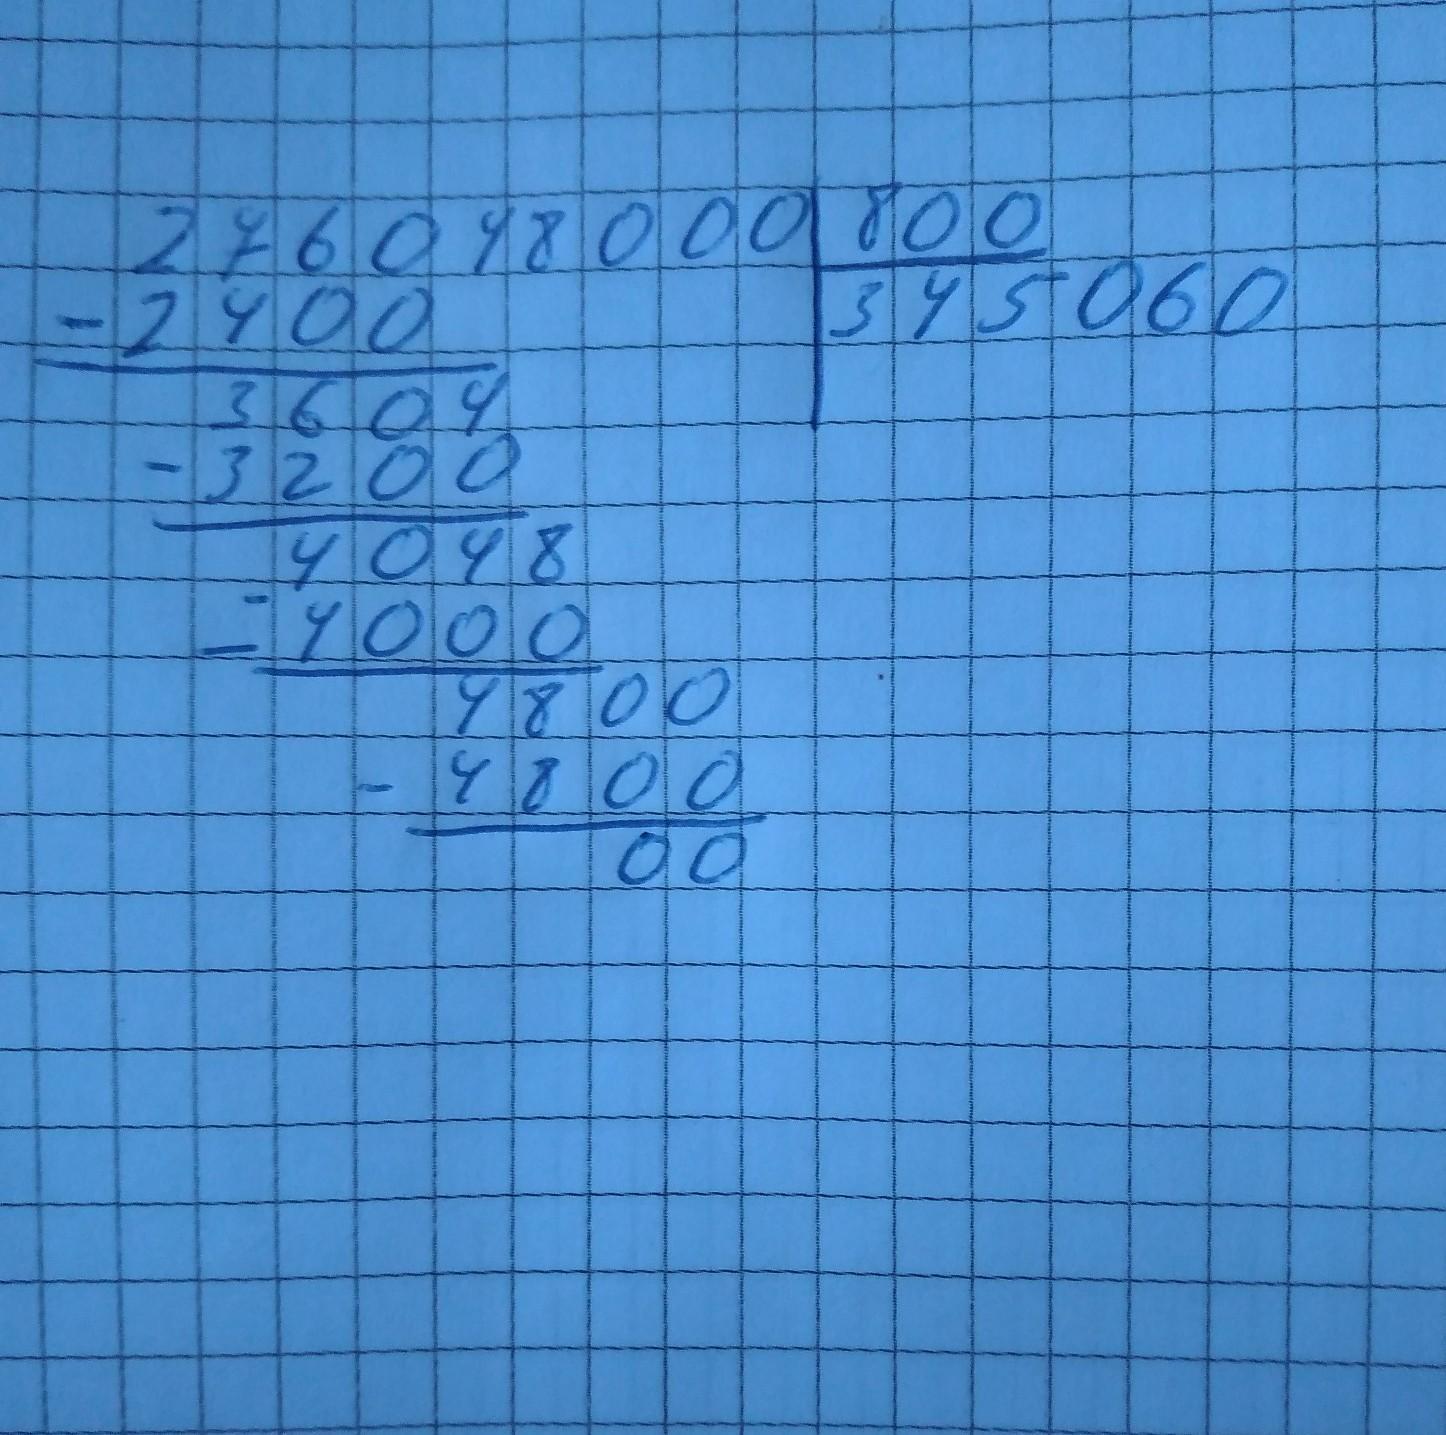 276048000 800
- 2400 345060
3604
- 3200
4048
- 4000
4800
- 4800
00